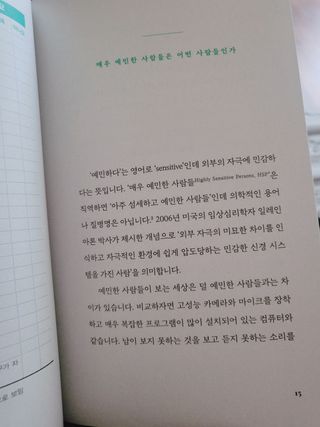 매우 예민한 사람들은 어떤 사람들인가
'예민하다'는 영어로 'sensitive'인데 외부의 자극에 민감하
다는 뜻입니다. '매우 예민한 사람들Highly Sensitive Persons, HSP'은
직역하면 '아주 섬세하고 예민한 사람들'인데 의학적인 용어
나 질병명은 아닙니다. 2006년 미국의 임상심리학자 일레인
아론 박사가 제시한 개념으로 '외부 자극의 미묘한 차이를 인
식하고 자극적인 환경에 쉽게 압도당하는 민감한 신경 시스
템을 가진 사람'을 의미합니다.
예민한 사람들이 보는 세상은 덜 예민한 사람들과는 차
이가 있습니다. 비교하자면 고성능 카메라와 마이크를 장착
하고 매우 복잡한 프로그램이 많이 설치되어 있는 컴퓨터와
같습니다. 남이 보지 못하는 것을 보고 듣지 못하는 소리를
15